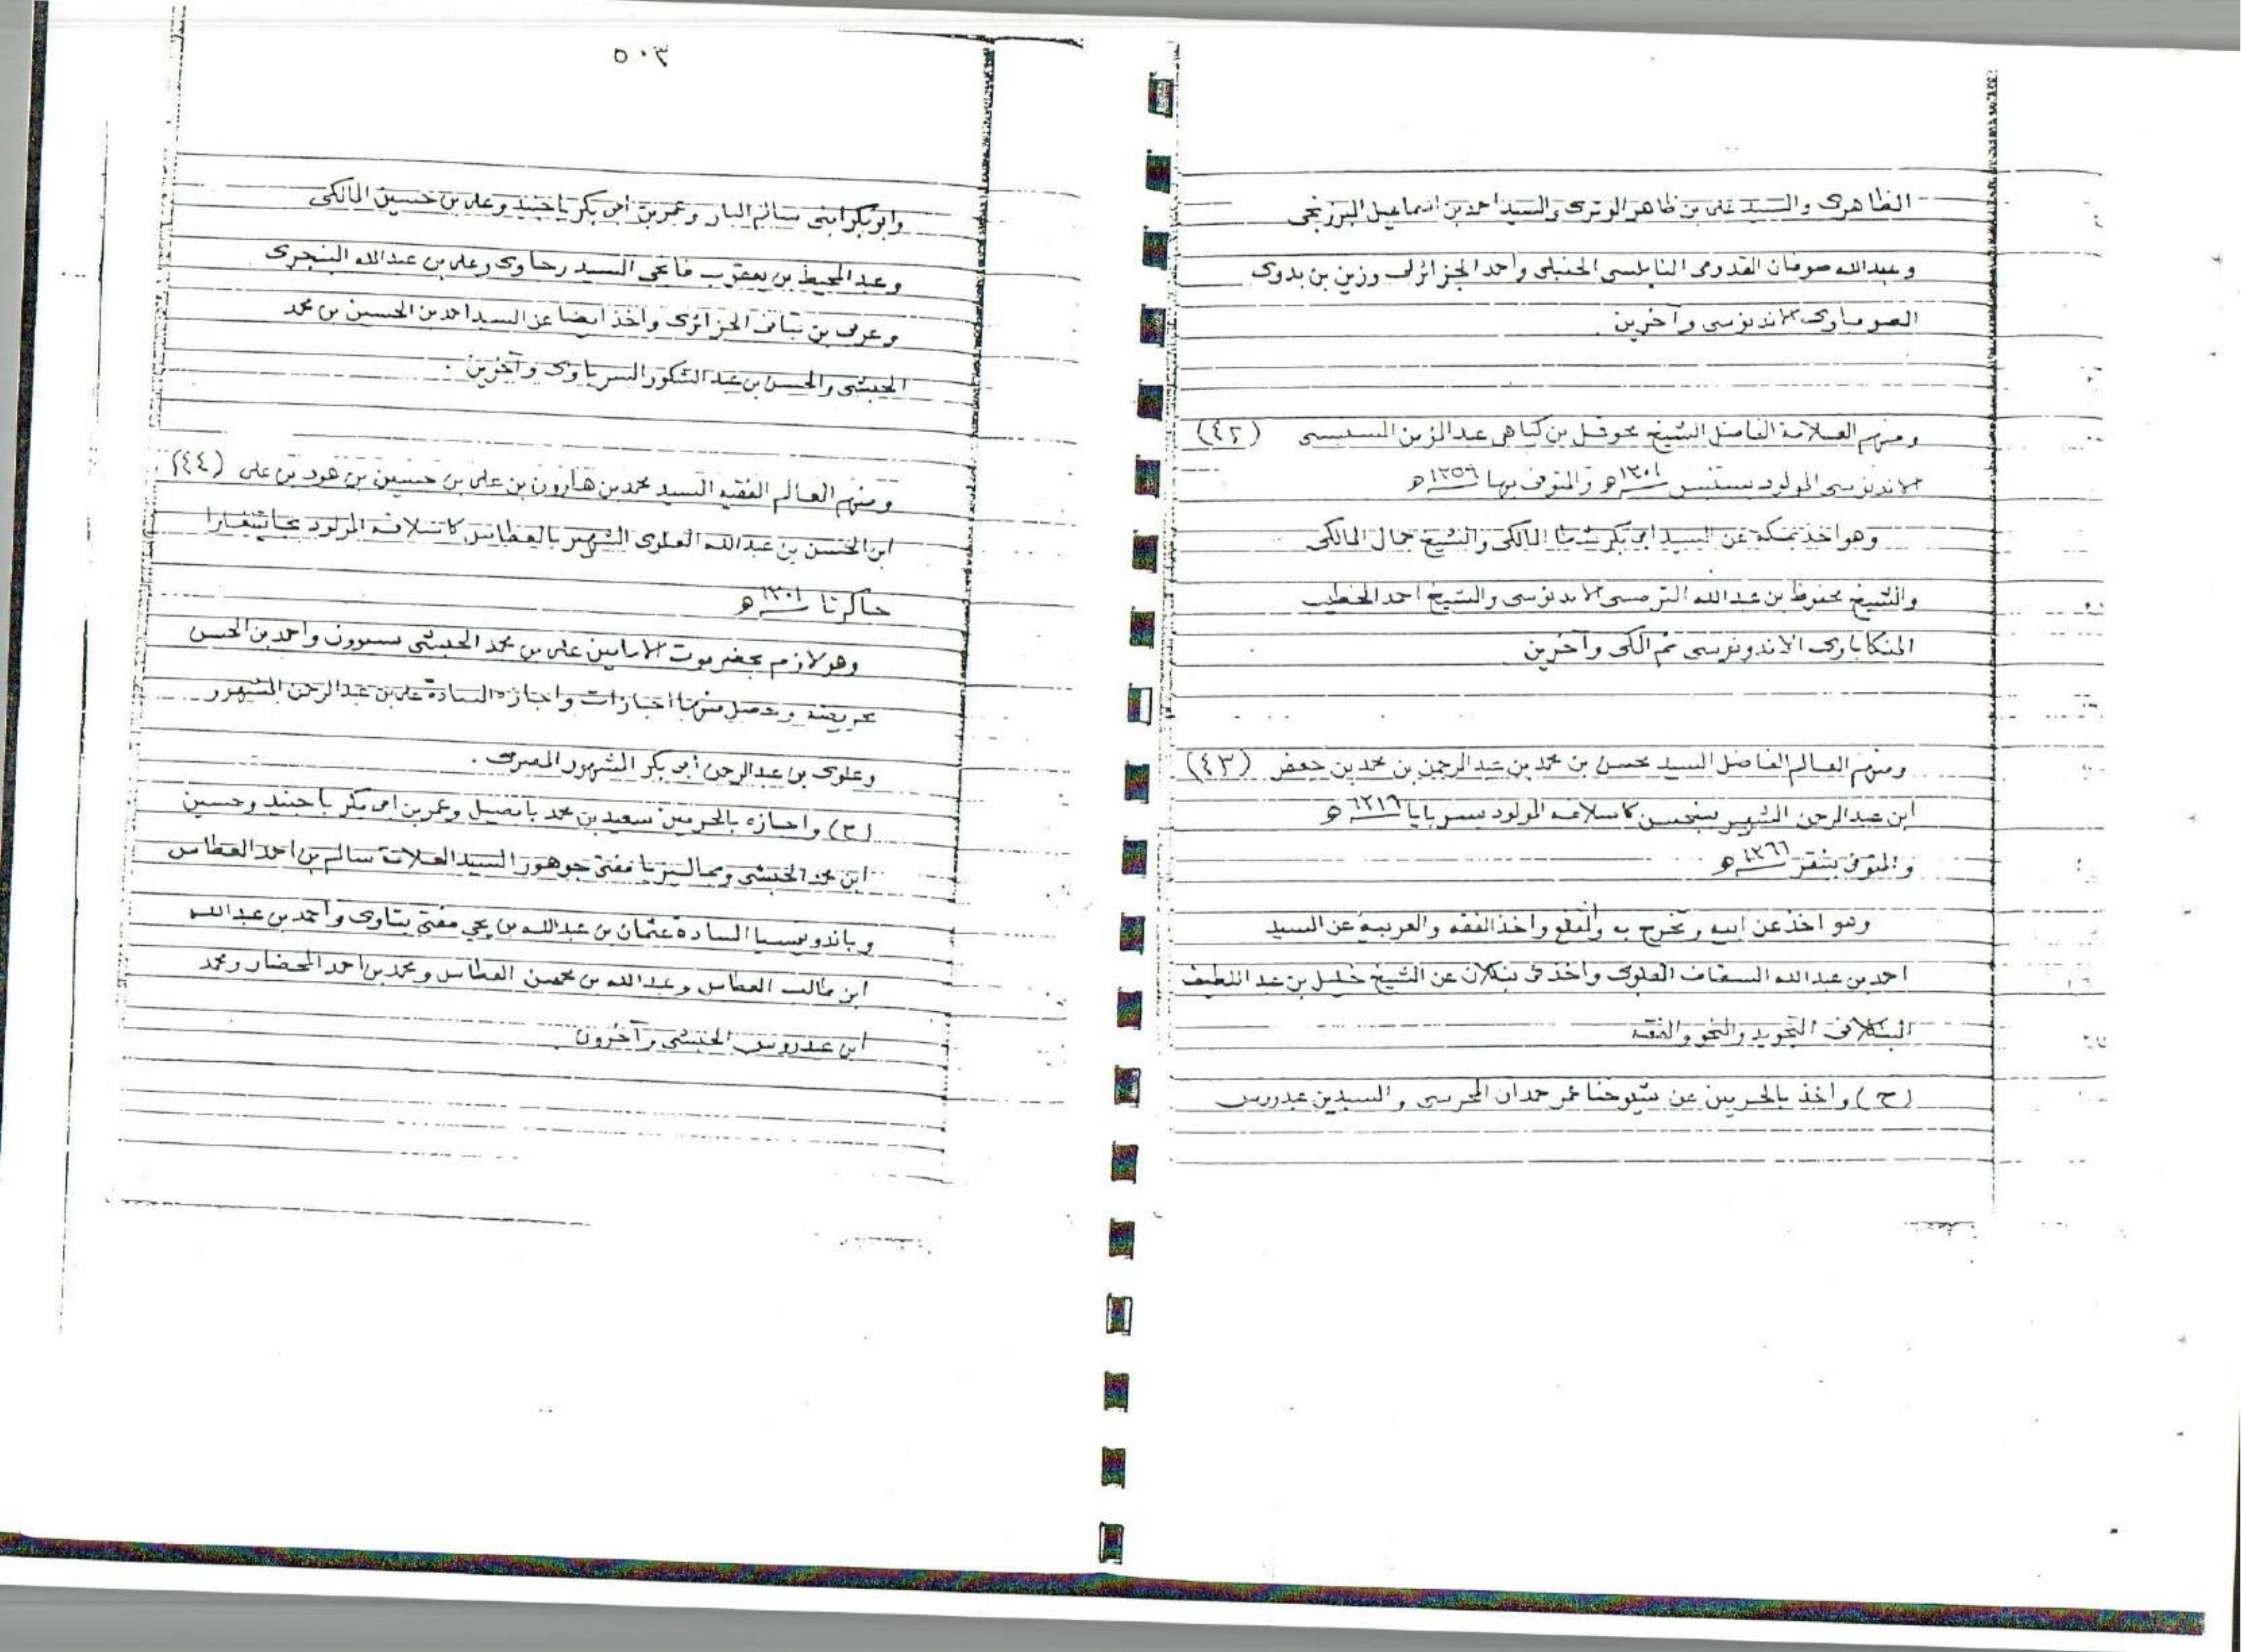 الظاهرى والسيد على بن ظاهر الوترى والسيد احمد بن اسماعيل البرزنجى
وعبدالله صوفان القدومى النابلسى الحنبلى واحمد الجزائرلى وزين بن بدوى
الصومباوى الاندنوسى وآخرين
ومنهم العلامة الفاضل الشيخ بن كياهى السديسى (٤٢)
الاندنوسى المولود ١٣٠١ھ والمتوفى بها ١٣٥٦ھ
وهو اخذ بمكة عن السيد ابى بكر شطا المالكى والشيخ جمال المالكى
والشيخ محفوظ بن عبدالله الترمسى الاندنوسى والشيخ احمد الخطيب
المنكاباوى الاندونوسى ثم المكى وآخرين
ومنهم العالم الفاضل السيد محسن بن محمد بن عبدالرحمن بن محمد بن جعفر (٤٣)
ابن عبدالرحمن الشهير كاسلافه المولود بسربايا ١٣١٦ھ
والمتوفى ١٣٦٦ھ
وهو اخذ عن ابيه وتخرج به وانتفع واخذ الفقه والعربية عن السيد
احمد بن عبدالله السقاف العلوى واخذ فى بنكلان عن الشيخ خليل بن عبد اللطيف
البنكلانى التجويد والنحو والفقه
(ح) واخذ بالحرمين عن شيوخنا عمر حمدان المحرسى والسيدين عيدروس
٥٠٣
وابوبكر ابنى سالم البار وعمر بن ابى بكر باجنيد وعلى بن حسين المالكى
وعبد المحيط بن يعقوب السيد وعلى بن عبدالله البنجرى
وعربى بن تبانى الجزائرى واخذ ايضا عن السيد احمد بن الحسين بن محمد
الحبشى والحسن بن عبد الشكور السرباوى وآخرين .
ومنهم العالم الفقيه السيد محمد بن هارون بن على بن حسين بن هود بن على (٤٤)
ابن الحسن بن عبدالله العلوى الشهير بالعطاس كاسلافه المولود
جاكرتا ١٣٠١ھ
وهو لازم بحضرموت الامامين على بن محمد الحبشى بسيوون واحمد بن الحسن
بحريضة وحصل منهما اجازات واجازه السادة على بن عبدالرحمن المشهور
وعلوى بن عبدالرحمن ابى بكر المشهور .
(ح) واجازه بالحرمين سعيد بن محمد بابصيل وعمر بن ابى بكر باجنيد وحسين
ابن محمد الحبشى مفتى جوهور السيد العلامة سالم بن احمد العطاس
وباندونيسيا السادة عثمان بن عبدالله بن يحيى مفتى بتاوى واحمد بن عبدالله
ابن طالب العطاس وعبدالله بن محسن العطاس ومحمد بن احمد المحضار ومحمد
ابن عيدروس الحبشى وآخرون